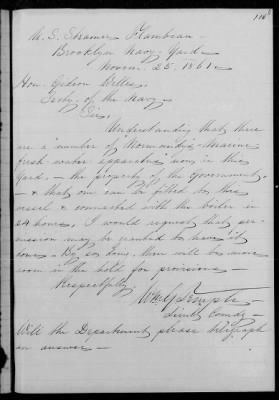 116
U. S. Steamer Flambeau
Brooklyn Navy Yard
Novem. 25. 1861.
Hon. Gideon Welles,
Secty. of the Navy
Sir,
Understanding that there
are a number of Normandy's Marine
fresh water apparatus now in this
Yard, - the property of the Government,
- & that one can be fitted to this
vessel & connected with the boiler in
24 hours, I would request that per-
mission may be granted to have it
done - By so doing there will be more
room in the hold for provisions -
Respectfully
Wm G Temple
Lieut. Comdg -
Will the Department please telegraph
an answer -